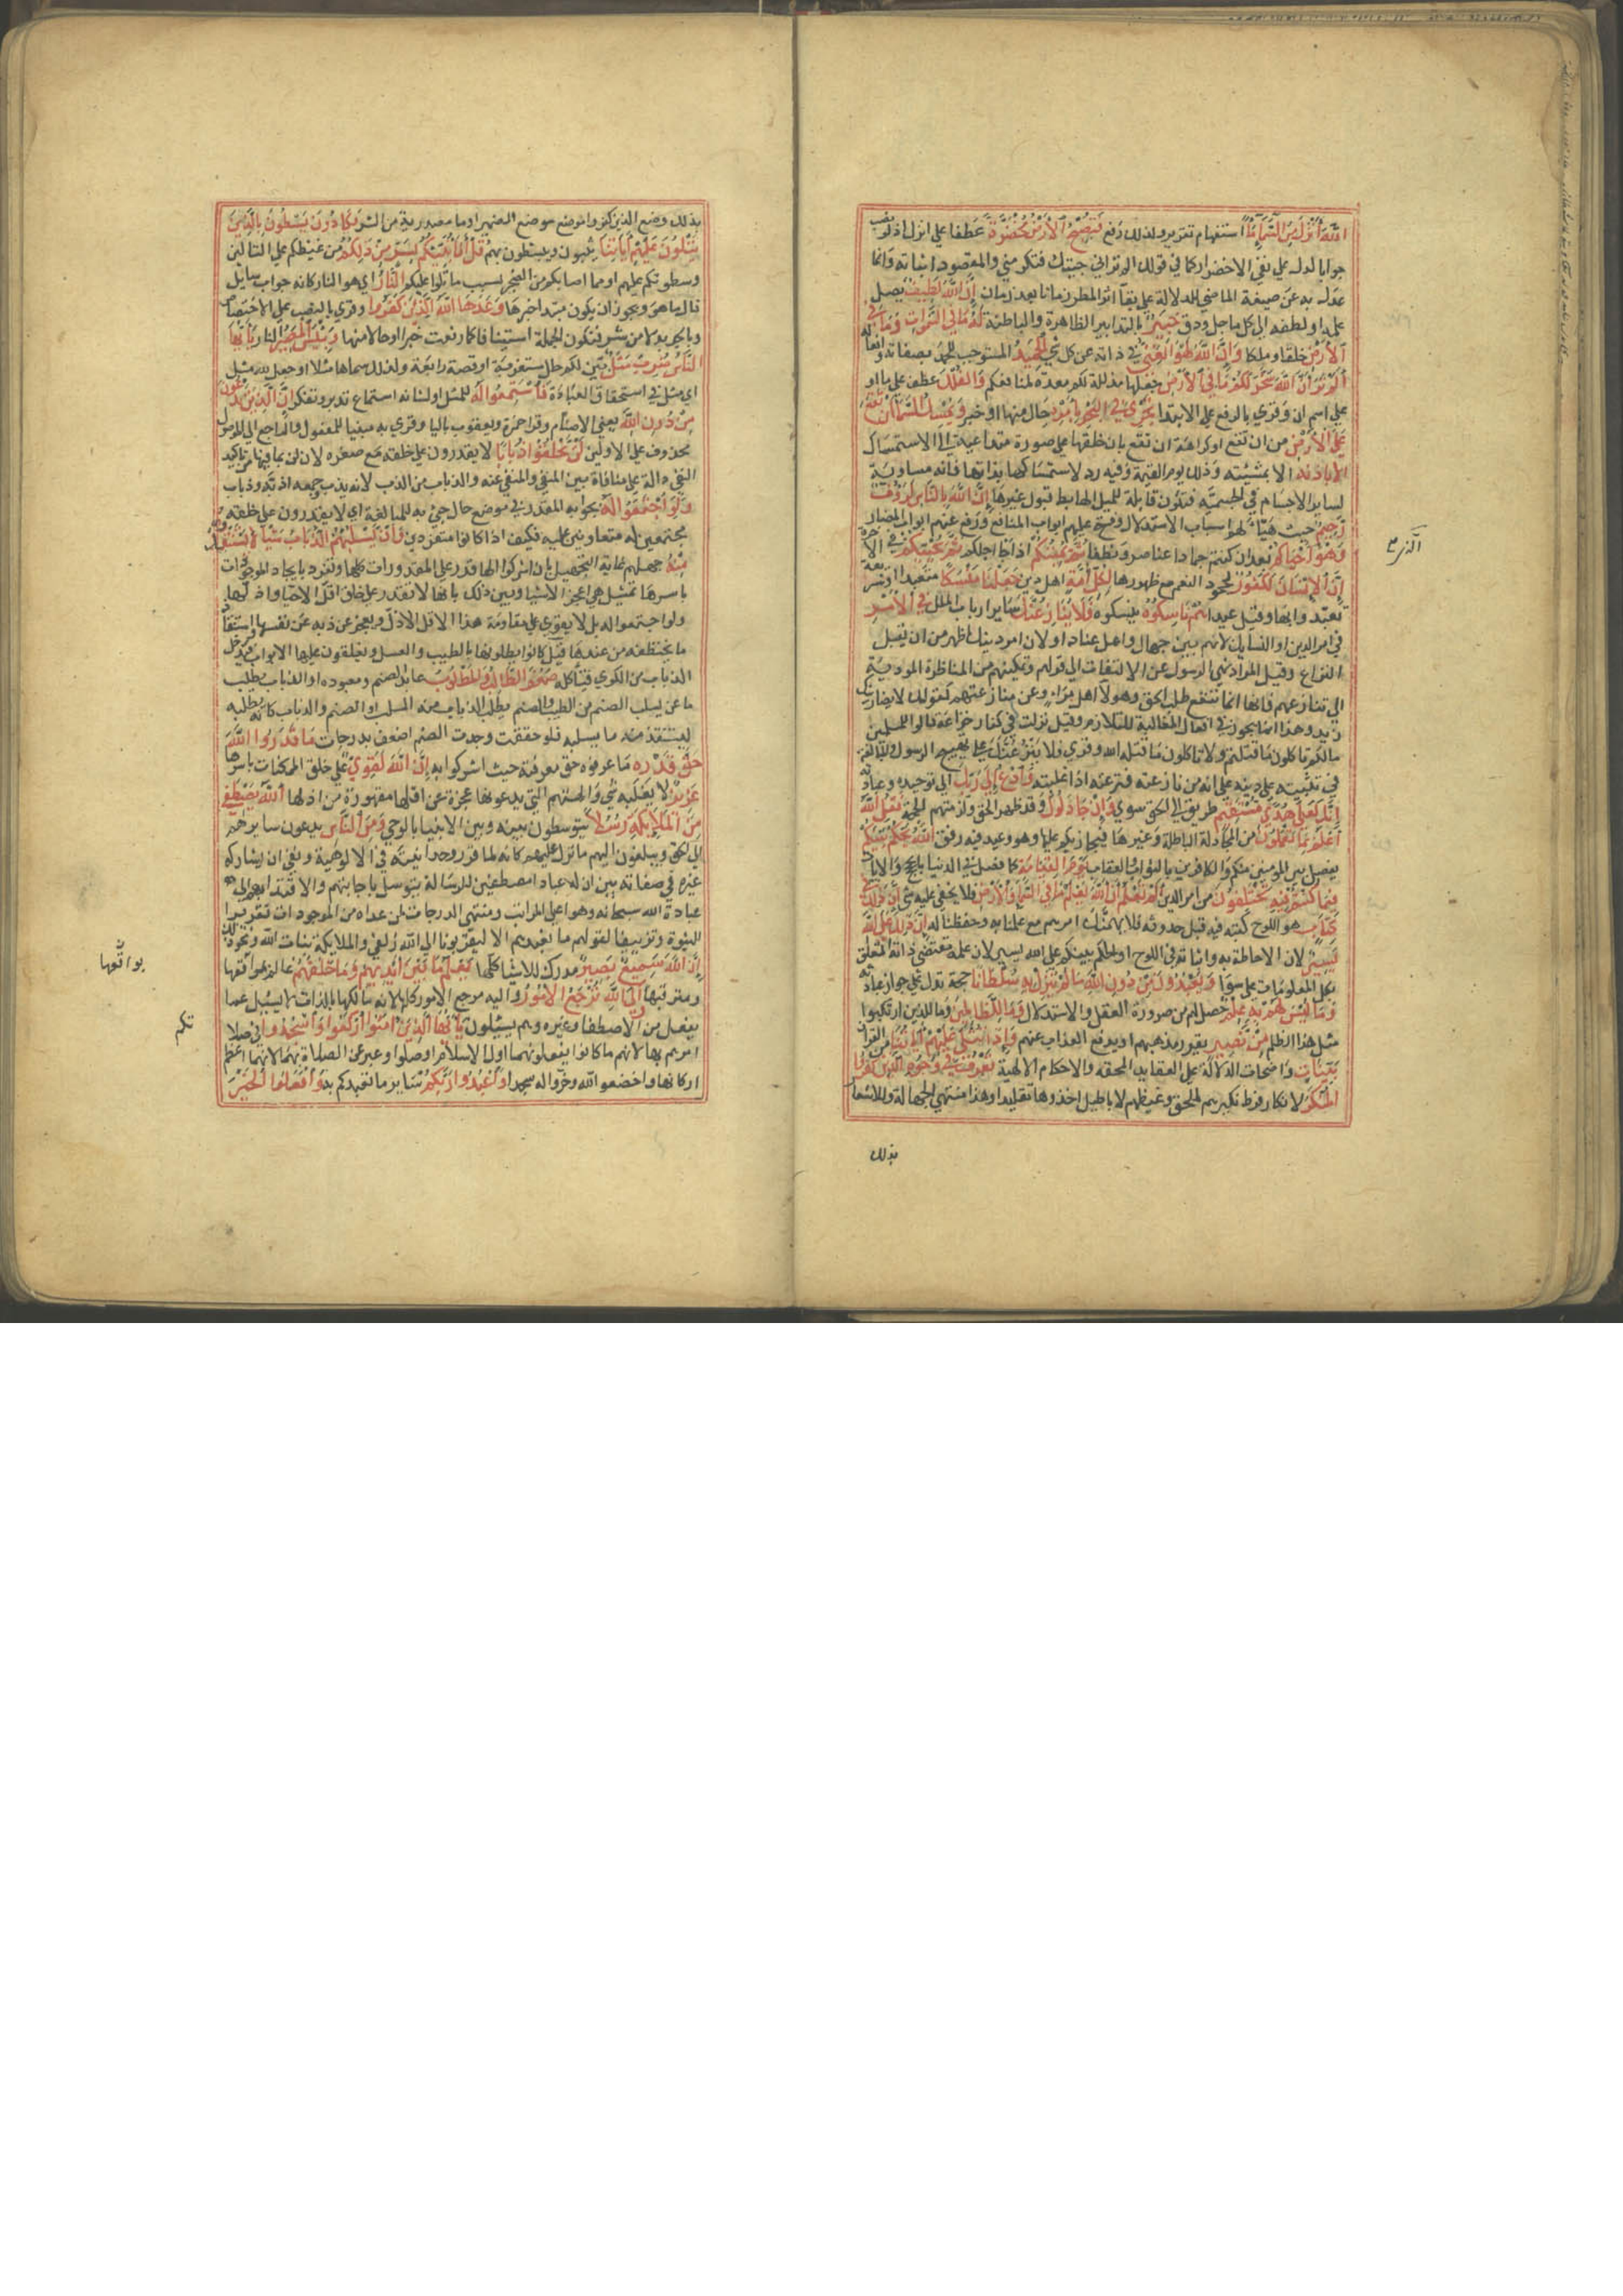 ان الله انزل من السماء ماء استفهام تقرير ولذلك رفع فتصبح الارض مخضرة عطفا على انزل اذ لو نصب
جوابا لدل على نفي الاخضرار كما في قولك الم تر اني جيتك فتكرمني والمقصود اثباته وانما
عدل به عن صيغة الماضي للدلالة على بقآ اثر المطر زمانا بعد زمان ان الله لطيف يصل
علمه او لطفه الى كل ما جل ودق خبير بالتدابير الظاهرة والباطنة له ما في السموات وما في
الارض خلقا وملكا وان الله لهو الغني في ذاته عن كل شي الحميد المستوجب للحمد بصفاته وافعاله
الم تر ان الله سخر لكم ما في الارض جعلها مذللة لكم معدة لمنافعكم والفلك عطف على ما او
على اسم ان وقري بالرفع على الابتدا تجري في البحر بامره حال منها او خبر ويمسك السمآ ان تقع
على الارض من ان تقع او كراهة ان تقع بان خلقها على صورة متداعية الى الاستمساك
الا باذنه الا بمشيته وذلك يوم القيمة وفيه رد لاستمساكها بذاتها فانه مساوية
لساير الاجسام في الجسمية فتكون قابلة للميل الهابط قبول غيرها ان الله بالناس لرؤف
رحيم حيث هيأ لهم اسباب الاستدلال وفتح عليهم ابواب المنافع ودفع عنهم ابواب المضار
وهو احياكم بعد ان كنتم جمادا عناصر ونطفا ثم يميتكم اذا جا اجلكم ثم يحييكم في الاخرة
ان الانسان لكفور لجحود النعم مع ظهورها لكل امة اهل دين جعلنا منسكا متعبدا او شريعة
تعبدوا بها وقيل عيدا هم ناسكوه ينسكونه فلا ينازعنك ساير ارباب الملل في الامر
في امر الدين او النسايك لانهم بين جهال واهل عناد او لان امر دينك اظهر من ان يقبل
النزاع وقيل المراد نهي الرسول عن الالتفات الى قولهم وتمكينهم من المناظرة المودية
الى نزاعهم فانها انما تنفع طالب الحق وهولا اهل مرآء وعن منازعتهم كقولك لا يضاربنك
زيد وهذا انما يجوز في افعال المغالبة للتلازم وقيل نزلت في كفار خزاعة قالوا للمسلمين
مالكم تاكلون ما قتلتم ولا تاكلون ما قتله الله وقري فلا ينزعنك على تهييج الرسول والمبالغة
في تثبيته على دينه على انه من نازعته فنزعته اذا غلبته وادع الى ربك الى توحيده وعبادته
انك لعلى هدى مستقيم طريق الى الحق سوي وان جادلوك وقد ظهر الحق ولزمتهم الحجة فقل الله
اعلم بما تعملون من المجادلة الباطلة وغيرها فيجازيكم عليها وهو وعيد فيه رفق الله يحكم بينكم
يفصل بين المومنين منكم والكافرين بالثواب والعقاب يوم القيامة كما فصل في الدنيا بالحجج والايات
فيما كنتم فيه تختلفون من امر الدين الم تعلم ان الله يعلم ما في السمآ والارض فلا يخفى عليه شي ان ذلك في
كتاب هو اللوح كتبه فيه قبل حدوثه فلا يهمنك امرهم مع علمنا به وحفظنا له ان ذلك على الله
يسير لان الاحاطة به واثباته في اللوح او الحكم بينكم على الله يسير لان علمه مقتضى ذاته المتعلق
بكل المعلومات على سوآ ويعبدون من دون الله ما لم ينزل به سلطانا حجة تدل على جواز عبادته
وما ليس لهم به علم حصل لهم من ضرورة العقل والاستدلال وما للظالمين وما للذين ارتكبوا
مثل هذا الظلم من نصير يقرر مذهبهم او يدفع العذاب عنهم واذا تتلى عليهم آياتنا من القرآن
بينات واضحات الدلالة على العقايد المحقه والاحكام الالهية تعرف في وجوه الذين كفروا
المنكر الانكار لفرط نكيرهم للحق وغيظهم لاباطيل اخذوها تقليدا وهذا منتهى الجهالة وللاشعار
بذلك
بذلك وضع الذين كفروا موضع الضمير او ما يقصدونه من الشر يكادون يسطون بالذين
يتلون عليهم اياتنا يثبون ويبطشون بهم قل افانبئكم بشر من ذلكم من غيظكم على التالين
وسطوتكم عليهم او مما اصابكم من الضجر بسبب ما تلوا عليكم النار اي هو النار كانه جواب سايل
قال ما هو ويجوز ان يكون مبتدا خبرها وعدها الله الذين كفروا وقري بالنصب على الاختصاص
وبالجر بدلا من شر فتكون الجملة استينافا كما رفعت خبرا او حالا منها وبئس المصير النار يا ايها
الناس ضرب مثل بين لكم حال مستغربة او قصة رايعة ولذلك سماها مثلا او جعل لله مثل
اي مثل في استحقاق العبادة فاستمعوا له للمثل او لشانه استماع تدبر وتفكر ان الذين تدعون
من دون الله يعني الاصنام وقرا حمزة ويعقوب باليا وقري به مبنيا للمفعول والراجع الى الموصول
محذوف على الاولين لن يخلقوا ذبابا لا يقدرون على خلقه مع صغره لان لن بما فيها من تاكيد
النفي دالة على منافاة بين المنفي والمنفي عنه والذباب من الذب لانه يذب وجمعه اذبة وذبان
ولو اجتمعوا له بجوابه المقدر في موضع حال جي به للمبالغة اي لا يقدرون على خلقه
مجتمعين له متعاونين عليه فكيف اذا كانوا منفردين وان يسلبهم الذباب شيئا لا يستنقذوه
منه جهلهم غاية التجهيل بان اشركوا الها قدر على المقدورات كلها وتفرد بايجاد الموجودات
باسرها تماثيل هي اعجز الاشيا وبين ذلك بانها لا تقدر على خلق اقل الاحيا واذلها
ولو اجتمعوا له بل لا يقوى على مقاومة هذا الاقل الاذل وتعجز عن ذبه عن نفسها واستنقاذ
ما يختطفه من عندها قيل كانوا يطلونها بالطيب والعسل ويغلقون عليها الابواب فيدخل
الذباب من الكوى فيأكله ضعف الطالب والمطلوب عابد الصنم ومعبوده او الذباب يطلب
ما عن يسلب الصنم من الطيب والصنم يطلب الذباب منه السلب او الصنم والذباب كانه يطلبه
ليستنقذ منه ما يسلبه فلو حققت وجدت الصنم اضعف بدرجات ما قدروا الله
حق قدره ما عرفوه حق معرفته حيث اشركوا به ان الله لقوي على خلق الممكنات باسرها
عزيز لا يغلبه شي والهتهم التي يدعونها عجزة عن اقلها مقهورة من اذلها الله يصطفي
من الملايكة رسلا يتوسطون بينه وبين الانبيا بالوحي ومن الناس يدعون سايرهم
الى الحق ويبلغون اليهم ما نزل عليهم كانه لما قرر وحدانيته في الالوهية ونفى ان يشاركه
غيره في صفاته بين ان له عبادا مصطفين للرسالة يتوسل باجابتهم والاقتدا بهم الى
عبادة الله سبحانه وهو اعلى المراتب ومنتهى الدرجات لمن عداه من الموجودات تقريرا
للنبوة وتزييفا لقولهم ما نعبدهم الا ليقربونا الى الله زلفى والملايكة بنات الله ونحو ذلك
ان الله سميع بصير مدرك للاشيا كلها يعلم ما بين ايديهم وما خلفهم عالم بواقعها
ومترقبها والى الله ترجع الامور واليه مرجع الامور كلها لانه مالكها بالذات لا يسئل عما
يفعل من الاصطفا وغيره وهم يسئلون يا ايها الذين امنوا اركعوا واسجدوا في صلاتكم
امرهم بها لانهم ما كانوا يفعلونهما اول الاسلام او صلوا وعبر عن الصلاة بهما لانهما اعظم
اركانها او اخضعوا لله وخروا له سجدا واعبدوا ربكم بساير ما تعبدكم به وافعلوا الخير
بواقعها
تكم